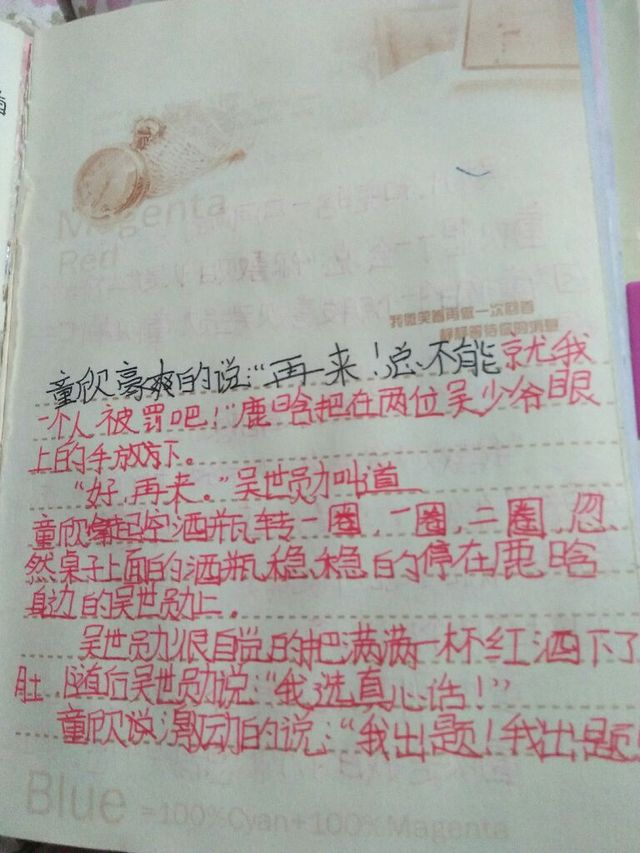 Magenta
Red
我微笑着再做一次回答
静静等待你的消息
童欣豪爽的说:“再一来!总不能就我
一个人被罚吧!”鹿晗把在两位吴少爷眼
上的手放下。
“好,再来。”吴世勋叫道
童欣拿起空酒瓶转一圈,一圈,二圈,忽
然桌子上面的酒瓶稳稳的停在鹿晗
身边的吴世勋上。
吴世勋很自觉的把满满一杯红酒下了
肚,随后吴世勋说:“我选真心话!”
童欣说激动的说:“我出题!我出题!
Blue =100%Cyan+100%Magenta